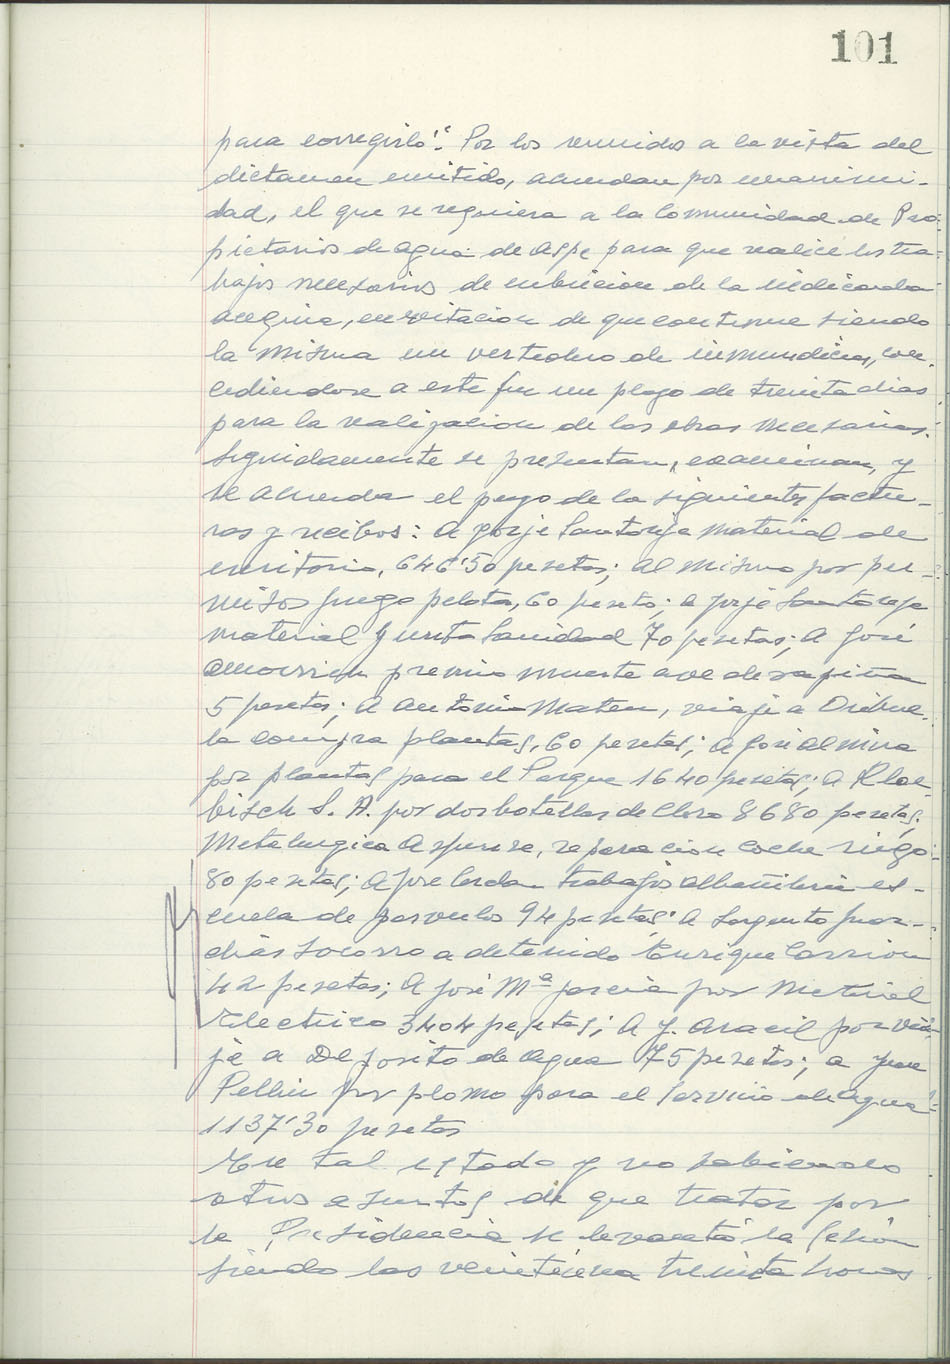 101
para corregirlo". Por los reunidos a la vista del
dictamen emitido, acuerdan por unanimi-
dad, el que se requiera a la Comunidad de Pro-
pietarios de agua de Aspe para que realice los tra-
bajos necesarios de cubricion de la indicada
acequia, en evitacion de que continue siendo
la misma un vertedero de inmundicias, con-
cediendose a este fin un plazo de treinta dias
para la realizacion de las obras necesarias.
Seguidamente se presentan, examinan, y
se acuerda el pago de la siguientes factu-
ras y recibos: A Jorje Santonja material de
escritorio, 646'50 pesetas; al mismo por per-
misos juego pelota, 60 pesetas; a Jorje Santonja
material Junta Sanidad 70 pesetas; A José
premio muerte ave de rapiña
5 pesetas; A Antonio Mateu, viaje a Orihue-
la compra plantas, 60 pesetas; a José Almira
por plantas para el Parque 1640 pesetas; A Kloe-
bisch S. A. por dos botellas de Cloro 8680 pesetas;
Metalurgica Aspense, reparacion coche riego
80 pesetas; A José Cerdan trabajos albañileria es-
cuela de parvulos 94 pesetas; A Sargento guar-
dias socorro a detenido Enrique Carrion
42 pesetas; A José Mª Garcia por Material
Electrico 3404 pesetas; A J. Aracil por via-
je a Deposito de Agua 75 pesetas; a Juan
Pellin por plomo para el Servicio de Agua
1137'30 pesetas
En tal estado y no habiendo
otros asuntos de que tratar por
la Presidencia se levantó la Sesión
siendo las veintiuna treinta horas.